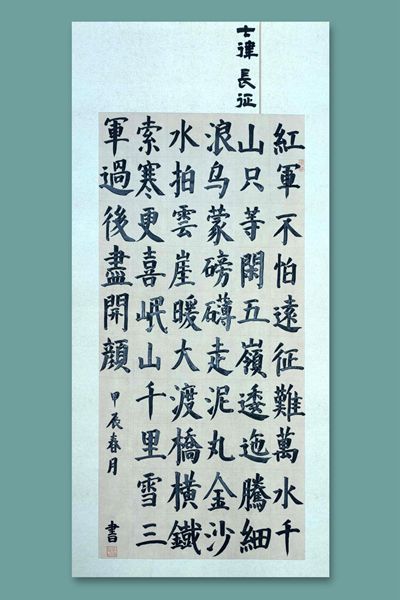 士律 長征
紅軍不怕遠征難萬水千
山只等閑五嶺逶迤騰細
浪乌蒙磅礴走泥丸金沙
水拍雲崖暖大渡橋橫鐵
索寒更喜岷山千里雪三
軍過後盡開顔
甲辰春月 書